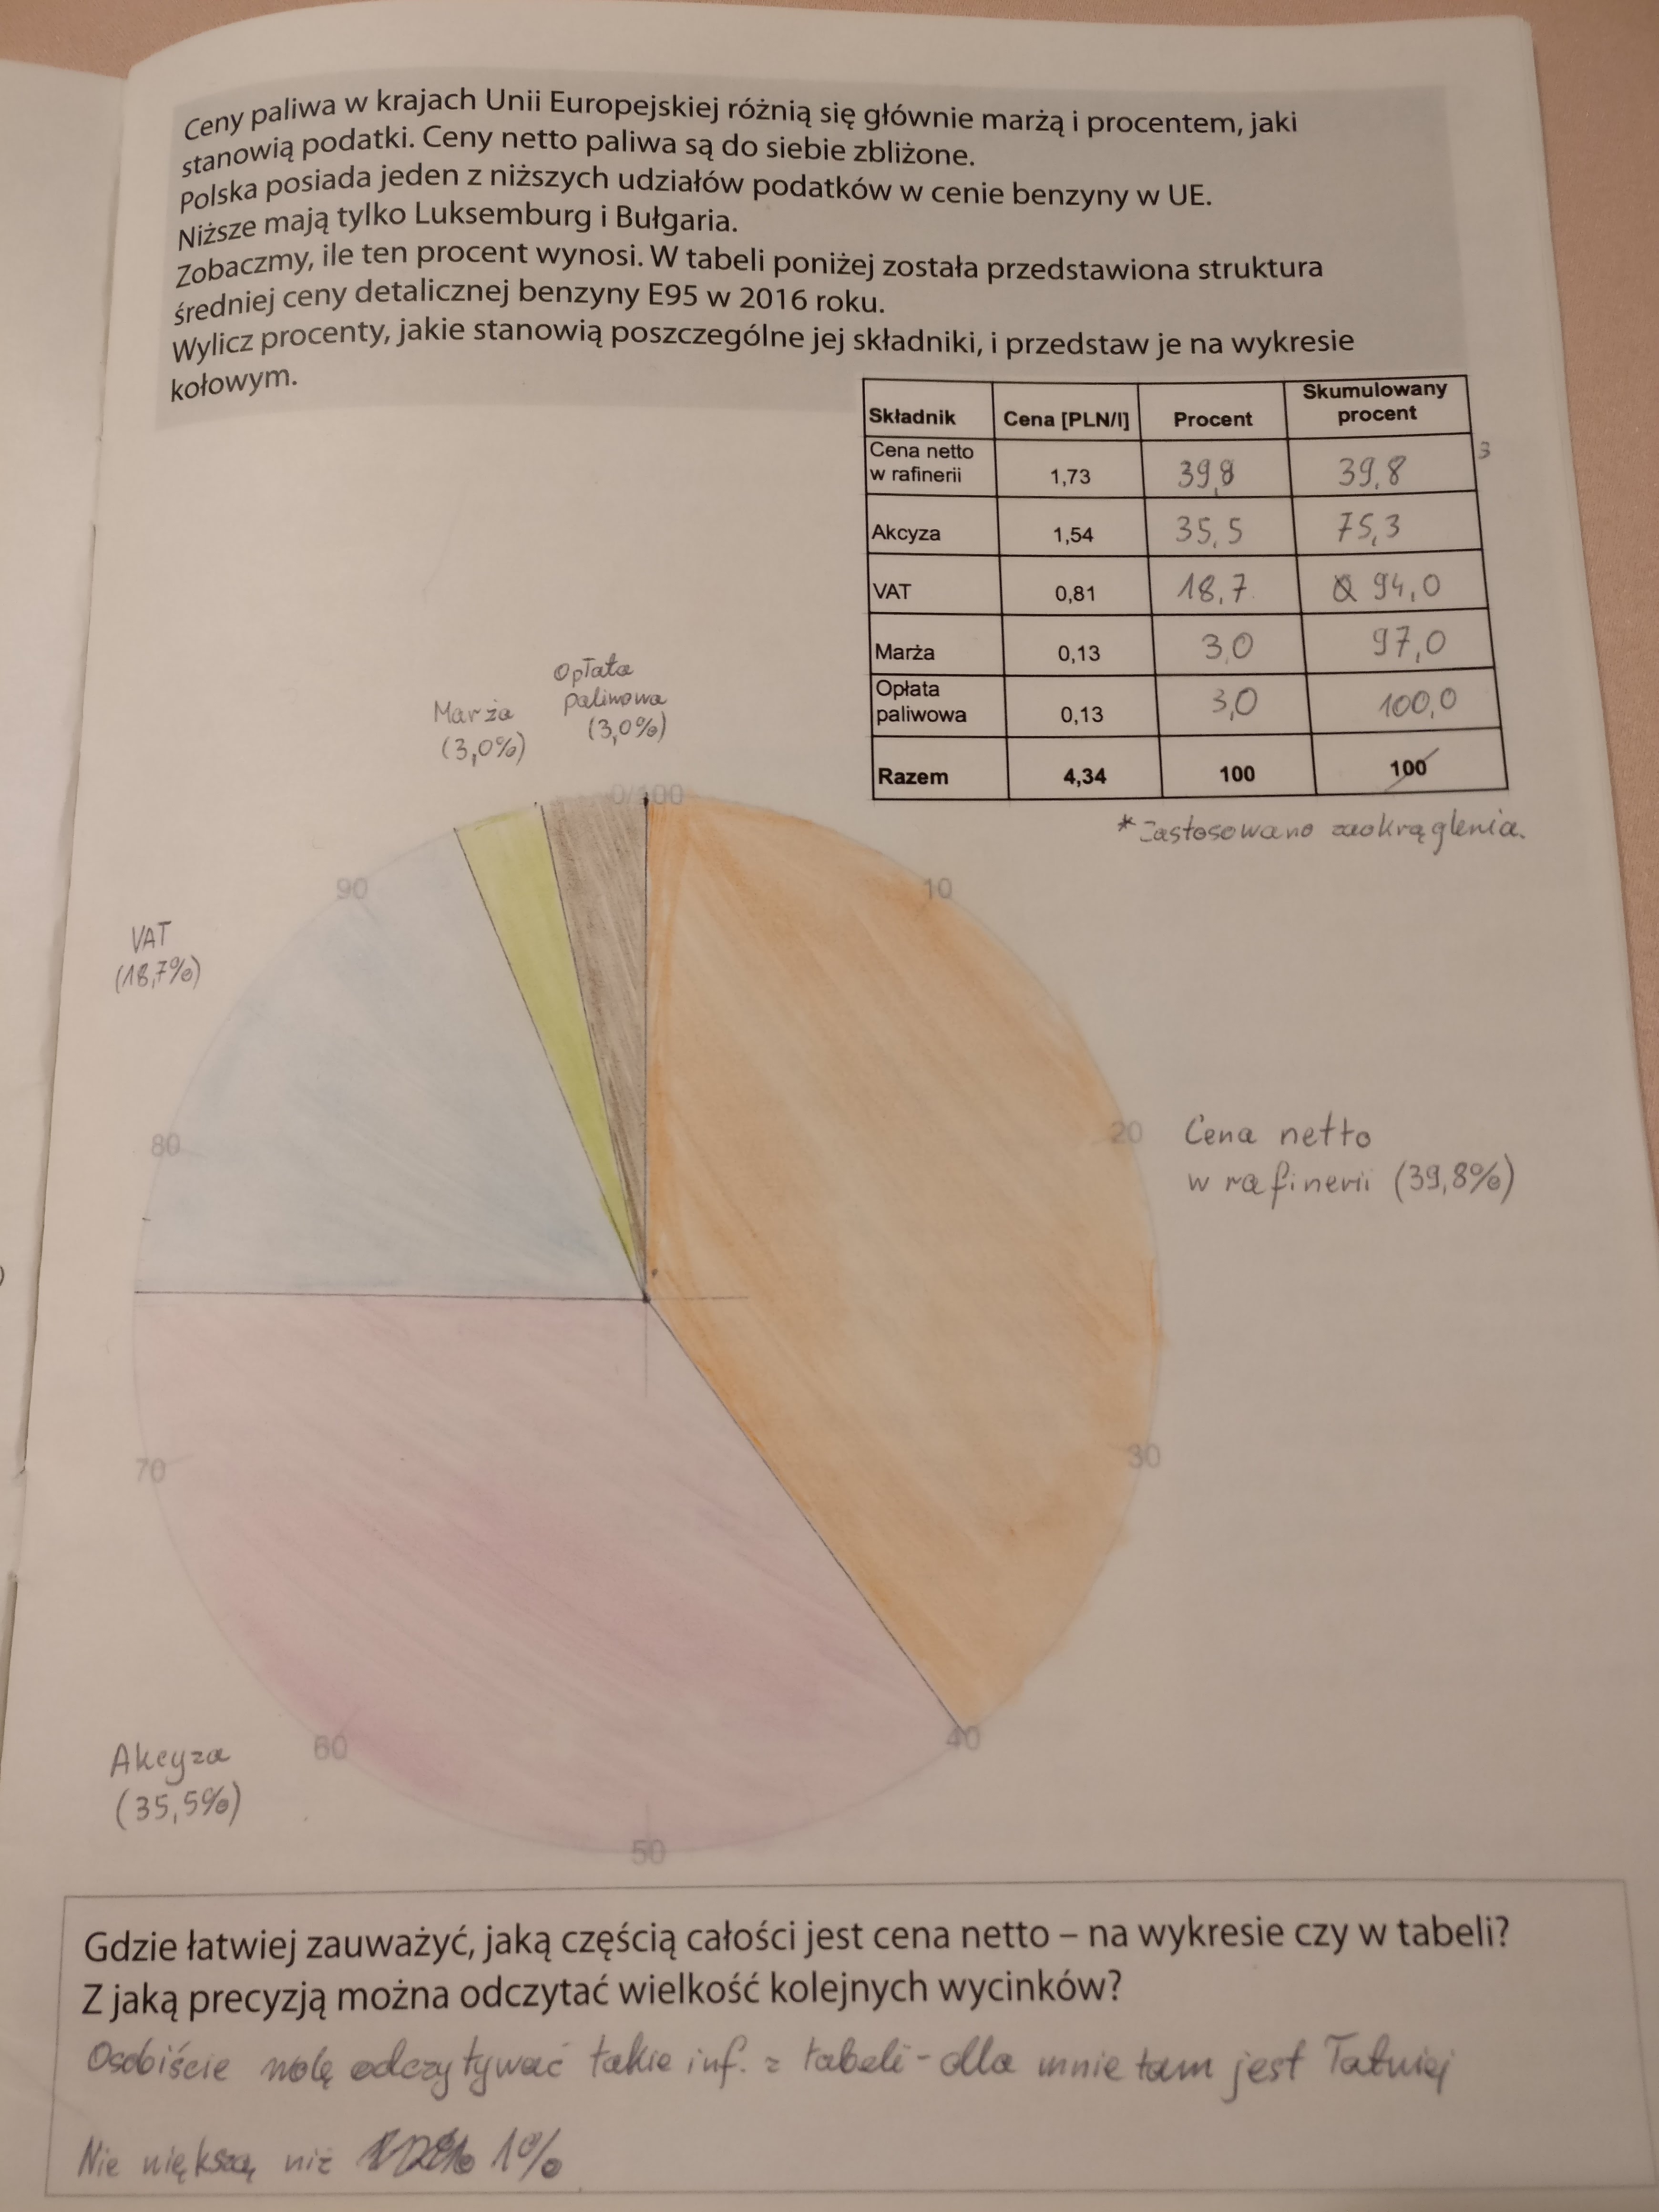 Ceny paliwa w krajach Unii Europejskiej różnią się głównie marżą i procentem, jaki
stanowią podatki. Ceny netto paliwa są do siebie zbliżone.
Polska posiada jeden z niższych udziałów podatków w cenie benzyny w UE.
Niższe mają tylko Luksemburg i Bułgaria.
Zobaczmy, ile ten procent wynosi. W tabeli poniżej została przedstawiona struktura
średniej ceny detalicznej benzyny E95 w 2016 roku.
Wylicz procenty, jakie stanowią poszczególne jej składniki, i przedstaw je na wykresie
kołowym.
Składnik Cena [PLN/l] Procent Skumulowany procent
Cena netto w rafinerii 1,73 39,8 39,8
3
Akcyza 1,54 35,5 75,3
VAT 0,81 18,7 94,0
Marża 0,13 3,0 97,0
Opłata paliwowa 0,13 3,0 100,0
Razem 4,34 100 100
* Zastosowano zaokrąglenia.
Opłata
paliwowa
(3,0%)
Marża
(3,0%)
0/100
10
90
VAT
(18,7%)
20
80
Cena netto
w rafinerii (39,8%)
30
70
40
60
Akcyza
(35,5%)
50
Gdzie łatwiej zauważyć, jaką częścią całości jest cena netto – na wykresie czy w tabeli?
Z jaką precyzją można odczytać wielkość kolejnych wycinków?
Osobiście wolę odczytywać takie inf. z tabeli - dla mnie tam jest łatwiej
Nie większą niż 1%